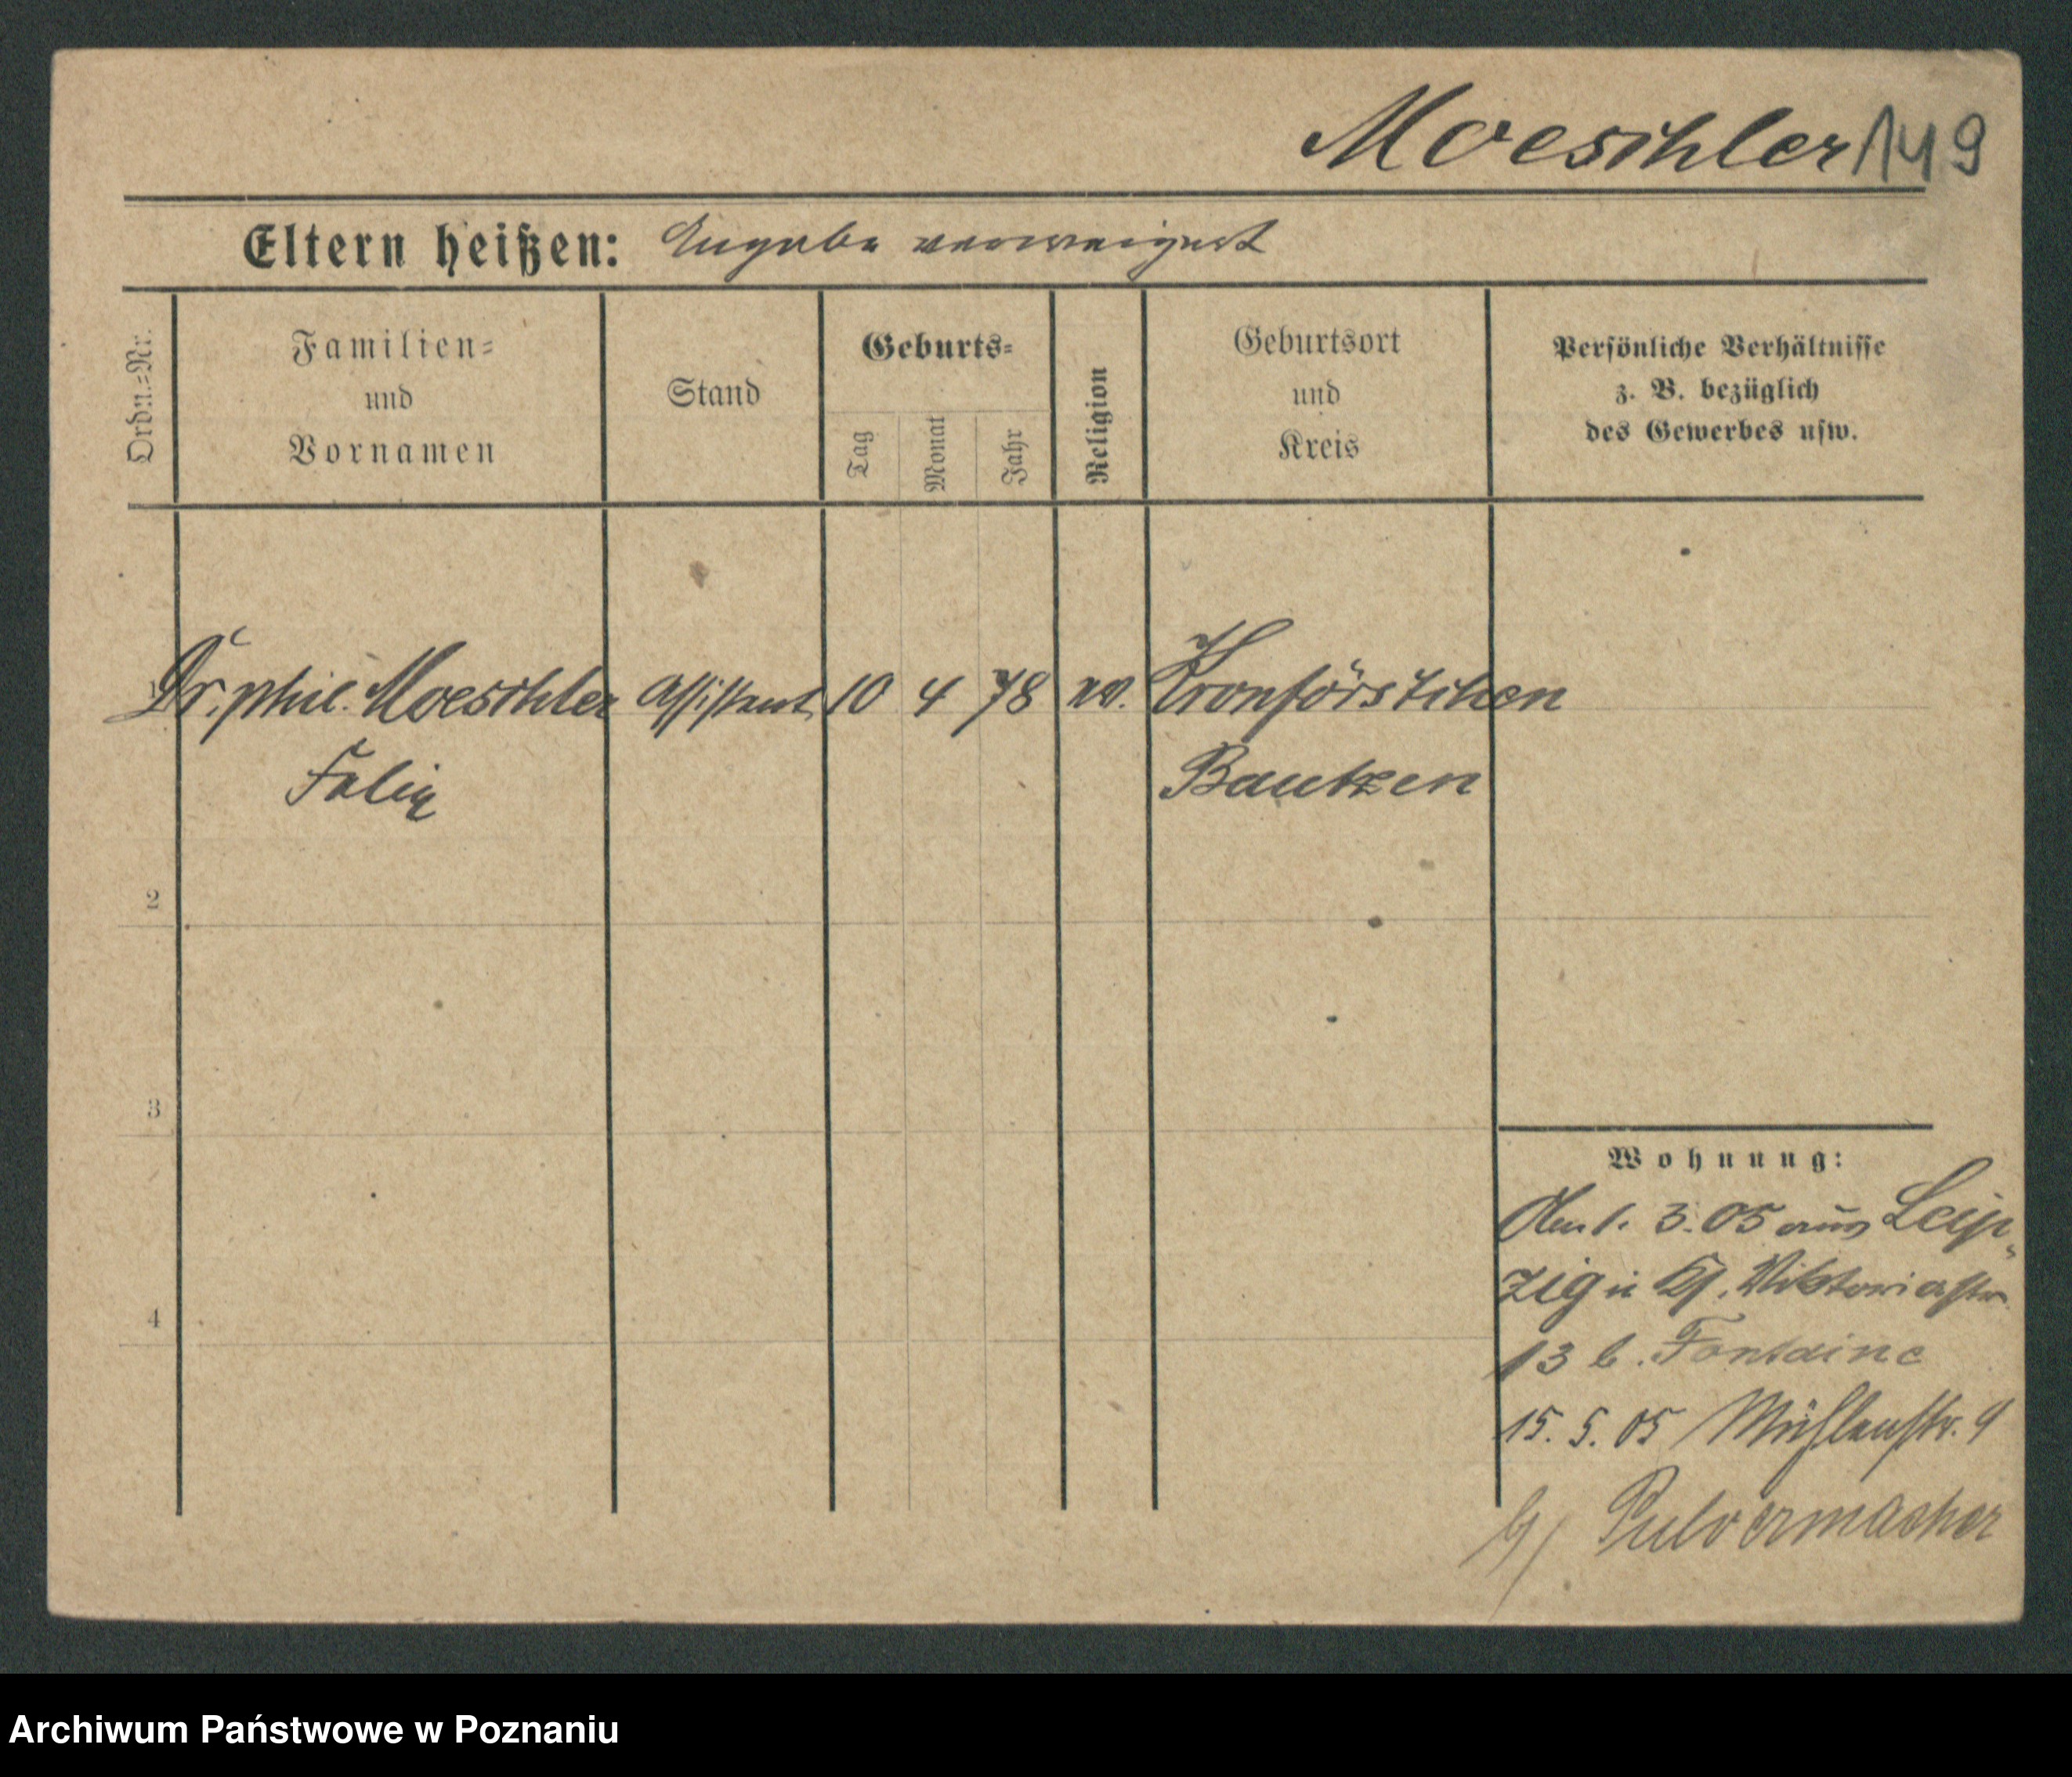 Moeschler 149
Eltern heißen: Angabe verweigert
Ordn.=Nr.
Familien=
und
Vornamen
Stand
Geburts=
Tag
Monat
Jahr
Religion
Geburtsort
und
Kreis
Persönliche Verhältnisse
z. B. bezüglich
des Gewerbes usw.
Dr. phil. Moeschler Assistent 10 4 78 ev. Kronförstchen
Felix Bautzen
2
3
4
Wohnung:
Am 1. 3. 05 aus Leip-
zig Viktoriastr.
13 b. Fontaine
15. 5. 05 Mühlenstr. 9
b/ Pulvermacher
Archiwum Państwowe w Poznaniu